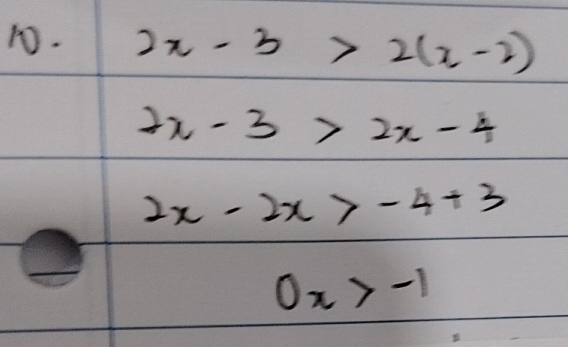 10. 2x - 3 > 2(x - 2)
2x - 3 > 2x - 4
2x - 2x > -4 + 3
0x > -1